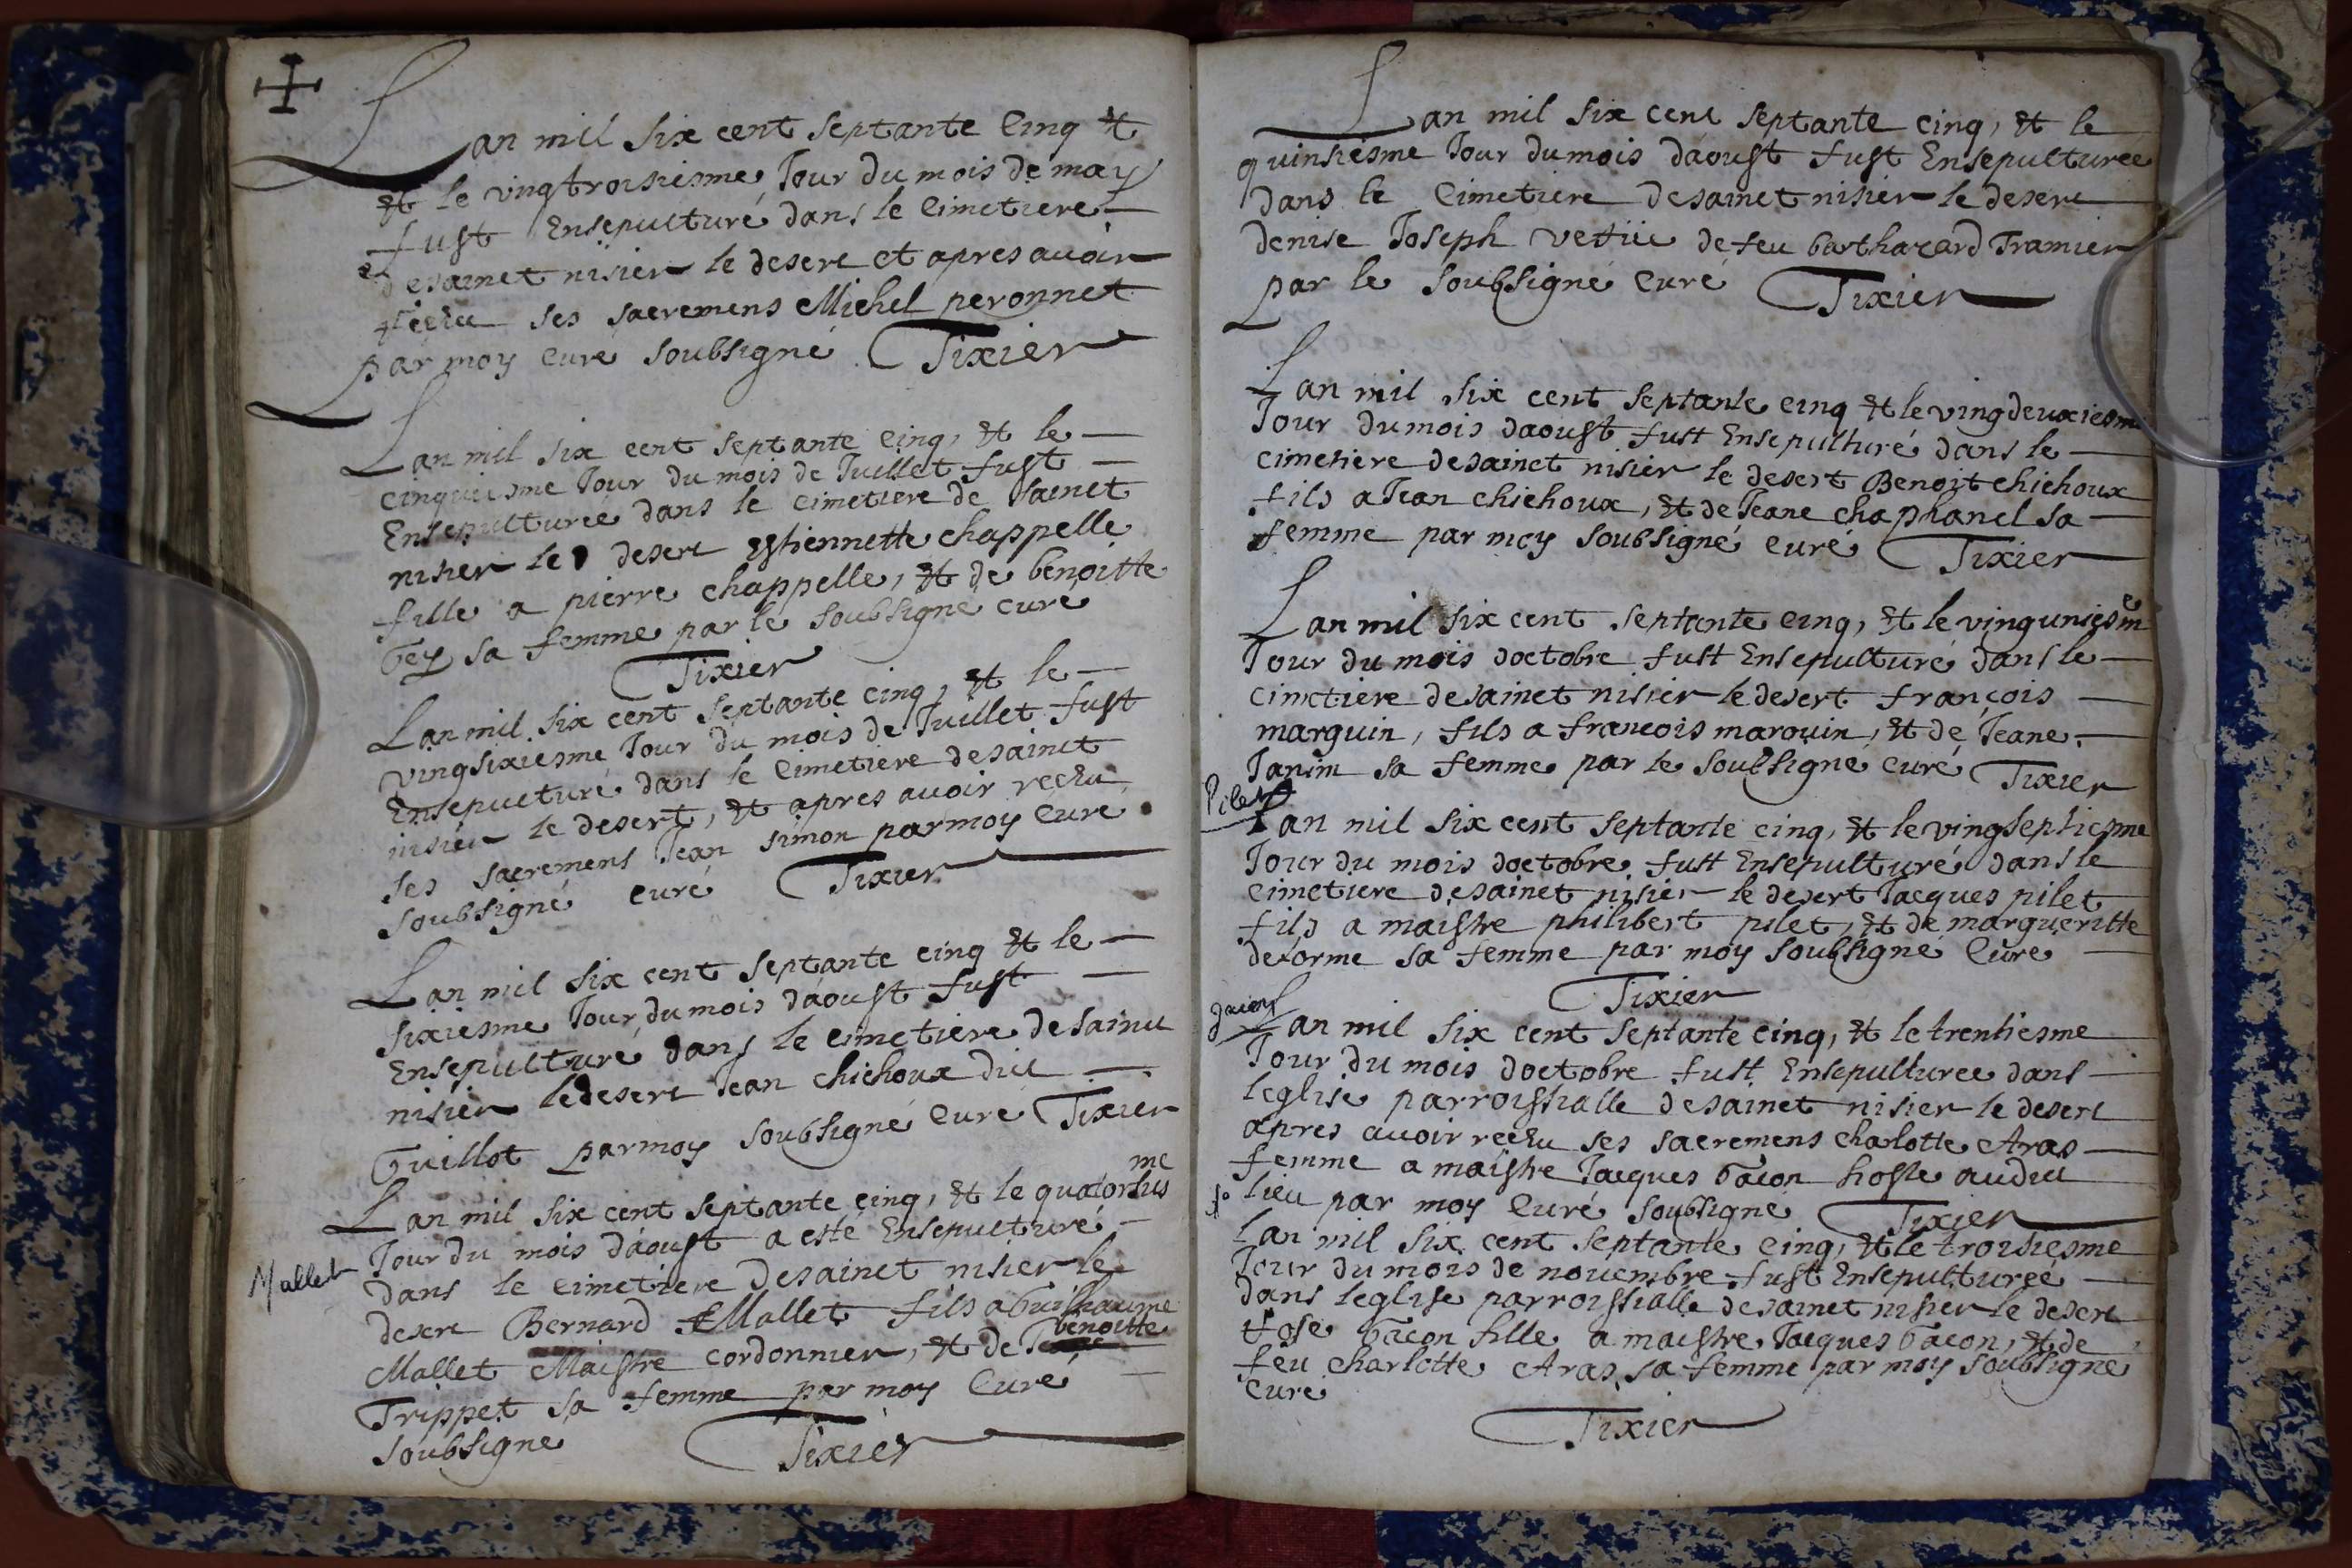 Lan mil six cent septante cinq et
et le vingtroisiesme Jour du mois de may
fust Ensepulturé dans le Cimetiere
desainct nisier le desert et apres auoir
recehu ses sacremens Michel peronnet
par moy Curé soubsigné Tixier
Lan mil six cent septante cinq, et le
cinquiesme Jour du mois de Juillet fust
Ensepulturée dans le cimetiere de sainct
nisier le desert estiennette chappelle
fille a pierre chappelle, et de benoitte
Gey sa femme par le soubsigné curé
Tixier
Lan mil six cent septante cinq, et le
vingsixiesme Jour du mois de Juillet fust
Ensepulturé dans le Cimetiere desainct
nisier le desert, et apres auoir recehu
ses sacremens Jean simon parmoy Curé
soubsigné curé Tixier
Lan mil six cent septante cinq et le
sixiesme Jour du mois daoust fust
Ensepulturé dans le cimetiere desainct
nisier ledesert Jean chichoux dict
Guillot parmoy soubsigné Curé Tixier
me
Lan mil six cent septante cinq, et le quatorsies
Jour du mois daoust a esté Ensepulturé
Mallet
dans le cimetiere desainct nisier le
desert Bernard Mallet fils a Guilhaume
benoitte
Mallet Maistre cordonnier, et de
Trippet sa femme par moy Curé
soubsigne Tixier
Lan mil six cent septante cinq, et le
quinsiesme Jour dumois daoust fust Ensepulturee
dans le Cimetiere desainct nisier le desert
denise Joseph vefue defeu barthazard Tramier
par le soubsigné Curé Tixier
Lan mil six cent septante cinq et le vingdeuxiesme
Jour dumois daoust fust Ensepulturé dans le
cimetiere desainct nisier le desert Benoit chichoux
fils a Jean chichoux, et de Jeane chaphanel sa
femme par moy soubsigné curé Tixier
Lan mil six cent septante cinq, et le vinguniesme
Jour du mois doctobre fust Ensepulturé dans le
cimetiere desainct nisier le desert françois
marguin, fils a francois marguin, et de Jeane
Janim sa femme par le soubsigné curé Tixier
Pilet
Lan mil six cent septante cinq, et le vingseptiesme
Jour du mois doctobre fust Ensepulturé dans le
cimetiere desainct nisier le desert Jacques pilet
fils a maistre philibert pilet, et de margueritte
delorme sa femme par moy soubsigné Curé
Tixier
Lan mil six cent septante cinq, et le trentiesme
Jour du mois doctobre fust Ensepulturee dans
leglise parroissialle desainct nisier le desert
apres auoir recehu ses sacremens charlotte Aras
femme a maistre Jacques Gacon hoste audict
lieu par moy Curé soubsigné Tixier
Lan mil six cent septante cinq, et le troisiesme
Jour du mois de nouembre fust Ensepulturée
dans leglise parroissialle desainct nisier le desert
rose Gacon fille a maistre Jacques Gacon, et de
feu charlotte Aras sa femme par moy soubsigné
Curé
Tixier